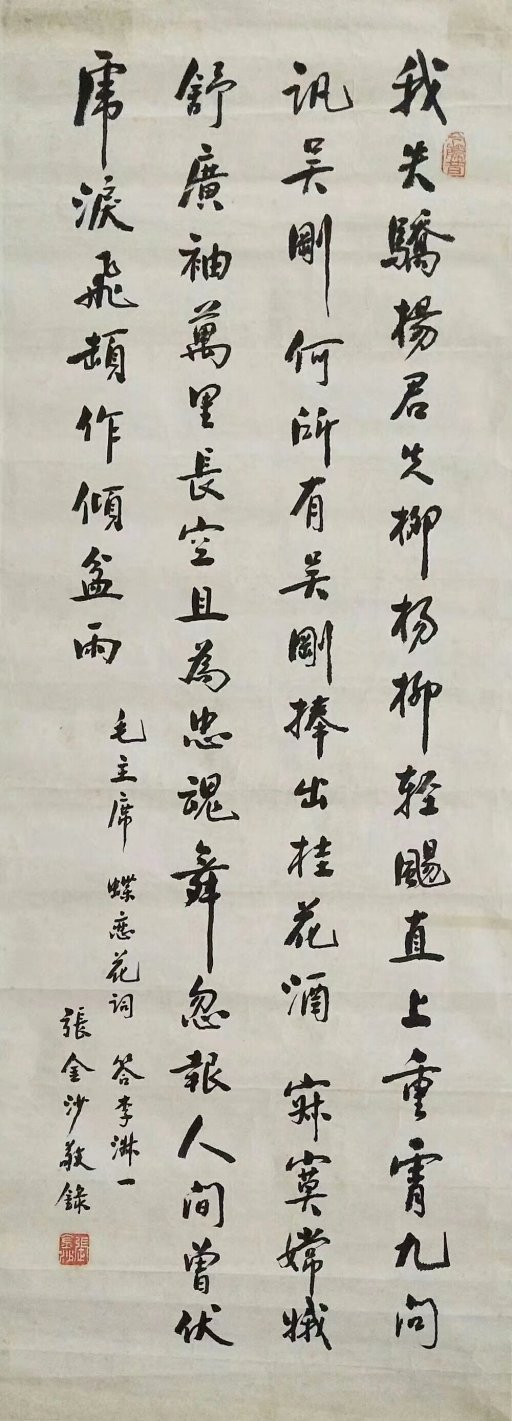 我失驕楊君失柳楊柳輕颺直上重霄九問
訊吴剛何所有吴剛捧出桂花酒寂寞嫦娥
舒廣袖萬里長空且為忠魂舞忽報人间曾伏
虎淚飛頓作傾盆雨
毛主席 蝶恋花词 答李淑一
張金沙敬錄